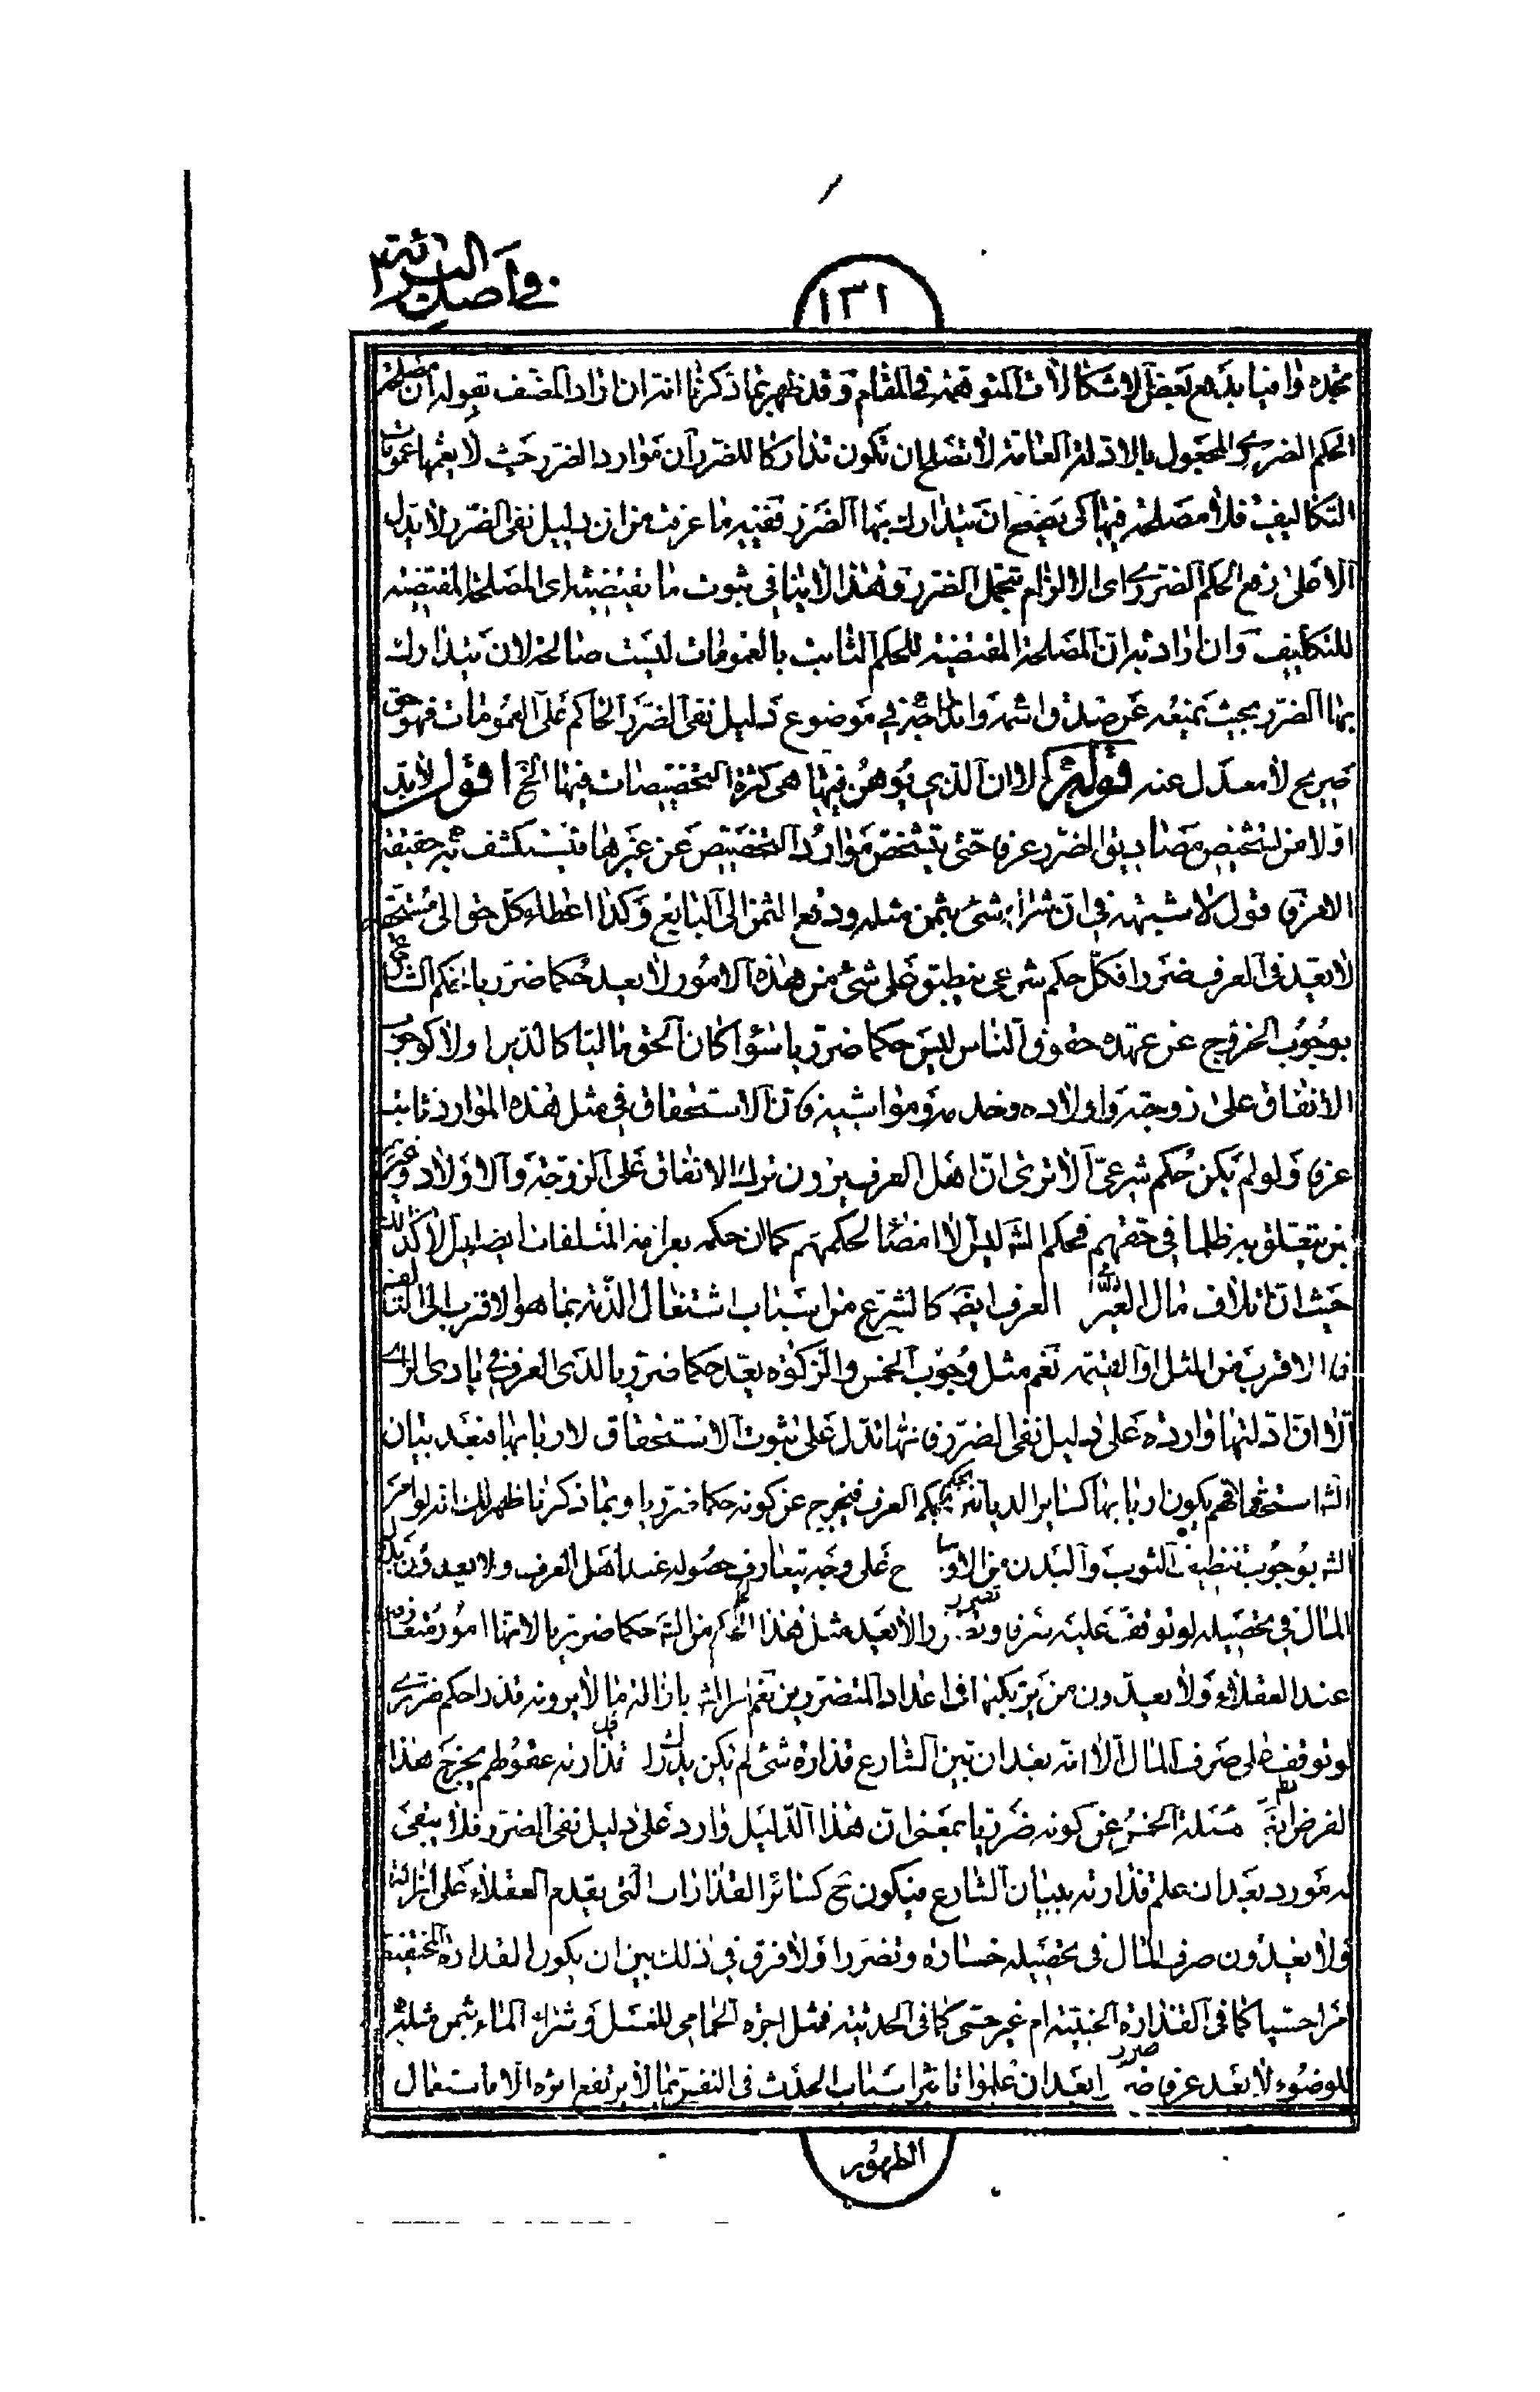 في اصل البرائة
١٣١
تجده وافيا بدفع بعض الاشكالات المتوهمة في المقام وقد ظهر بما ذكرنا انه ان اراد المصنف بقوله ان مصلحة
الحكم الضرري المجعول بالادلة العامة لا تصلح ان تكون تداركا للضرر ان موارد الضرر حيث لا يعمها عمومات
التكاليف فلا مصلحة فيها كي يصح ان يتدارك بها الضرر ففيه ما عرفت من ان دليل نفي الضرر لا يدل
الا على رفع الحكم الضرري اى الالزام بتحمل الضرر وهذا لا ينافي ثبوت ما يقتضيه اى المصلحة المقتضية
للتكليف وان اراد به ان المصلحة المقتضية للحكم الثابت بالعمومات ليست صالحة لان يتدارك
بها الضرر بحيث يمنعه عن صدق اسمه واندراجه في موضوع دليل نفي الضرر الحاكم على العمومات فهو حق
صريح لا معدل عنه قوله الا ان الذي يوهن فيها هي كثرة التخصيصات فيها الخ اقول لا بد
اولا من تشخيص مصاديق الضرر عرفا حتى يتشخص موارد التخصيص عن غيرها فيستكشف به حقيقة
الامر فنقول لا شبهة في ان شراء شئ بثمن مثله ودفع الثمن الى البايع وكذا اعطاء كل حق الى مستحقه
لا يعد في العرف ضررا فكل حكم شرعي ينطبق على شئ من هذه الامور لا يعد حكما ضرريا فحكم الشارع
بوجوب الخروج عن عهدة حقوق الناس ليس حكما ضرريا سواء كان الحق ماليا كالديون ام لا كوجوب
الانفاق على زوجته واولاده وخدمه ومواشيه فان الاستحقاق في مثل هذه الموارد ثابت
عرفا ولو لم يكن حكم شرعي الا ترى ان اهل العرف يرون ترك الانفاق على الزوجة والاولاد وغيرهم
ممن يتعلق به ظلما في حقهم فحكم الشه ليس الا امضاء لحكمهم كما ان حكمه بغرامة المتلفات ايضا ليس الا كذلك
حيث ان اتلاف مال الغير عند العرف ايضه كالشرع من اسباب اشتغال الذمة بما هو الاقرب الى التالف
فالاقرب من المثل او القيمة نعم مثل وجوب الخمس والزكوة يعد حكما ضرريا لدى العرف في بادى الراى
الا ان ادلتها واردة على دليل نفي الضرر فانها تدل على ثبوت الاستحقاق لاربابها فبعد بيان
الشه استحقاقهم يكون اربابها كساير الديانة بحكم العرف فيخرج عن كونه حكما ضرريا وبما ذكرنا ظهر لك انه لو امر
الشه بوجوب تنظيف الثوب والبدن من الاوساخ على وجه يتعارف حصوله عند اهل العرف ولا يعدون بذل
المال في تحصيله لو توقف عليه سرفا وتضررا لا يعد مثل هذا الحكم من الشه حكما ضرريا لانها امور متعارفة
عند العقلاء ولا يعدون من يرتكبها في اعداد المتضررين نعم امر الشه بازالة ما لا يرونه قذرا حكم ضرري
لو توقف على صرف المال الا انه بعد ان تبين الشارع قذارة شئ لم يكن يدرك قذارته عقولهم يخرج هذا
الفرض نظير مسئلة الخمس عن كونه ضرريا بمعنى ان هذا الدليل وارد على دليل نفي الضرر فلا يبقى
له مورد بعد ان علم قذارته ببيان الشارع فيكون ح كسائر القذارات التى يقدم العقلاء على ازالته
ولا يعدون صرف المال في تحصيله خسارة وتضررا ولا فرق في ذلك بين ان يكون القذارة الحقيقية
امرا حسيا كما في القذارة الخبثية ام غير حسى كما في الحدثية فمثل اجرة الحمامي للغسل وشراء الماء بثمن مثله
للوضوء لا يعد عرفا ضررا بعد ان علموا تاثير اسباب الحدث في النفس بما لا يرتفع اثره الا باستعمال
الطهور